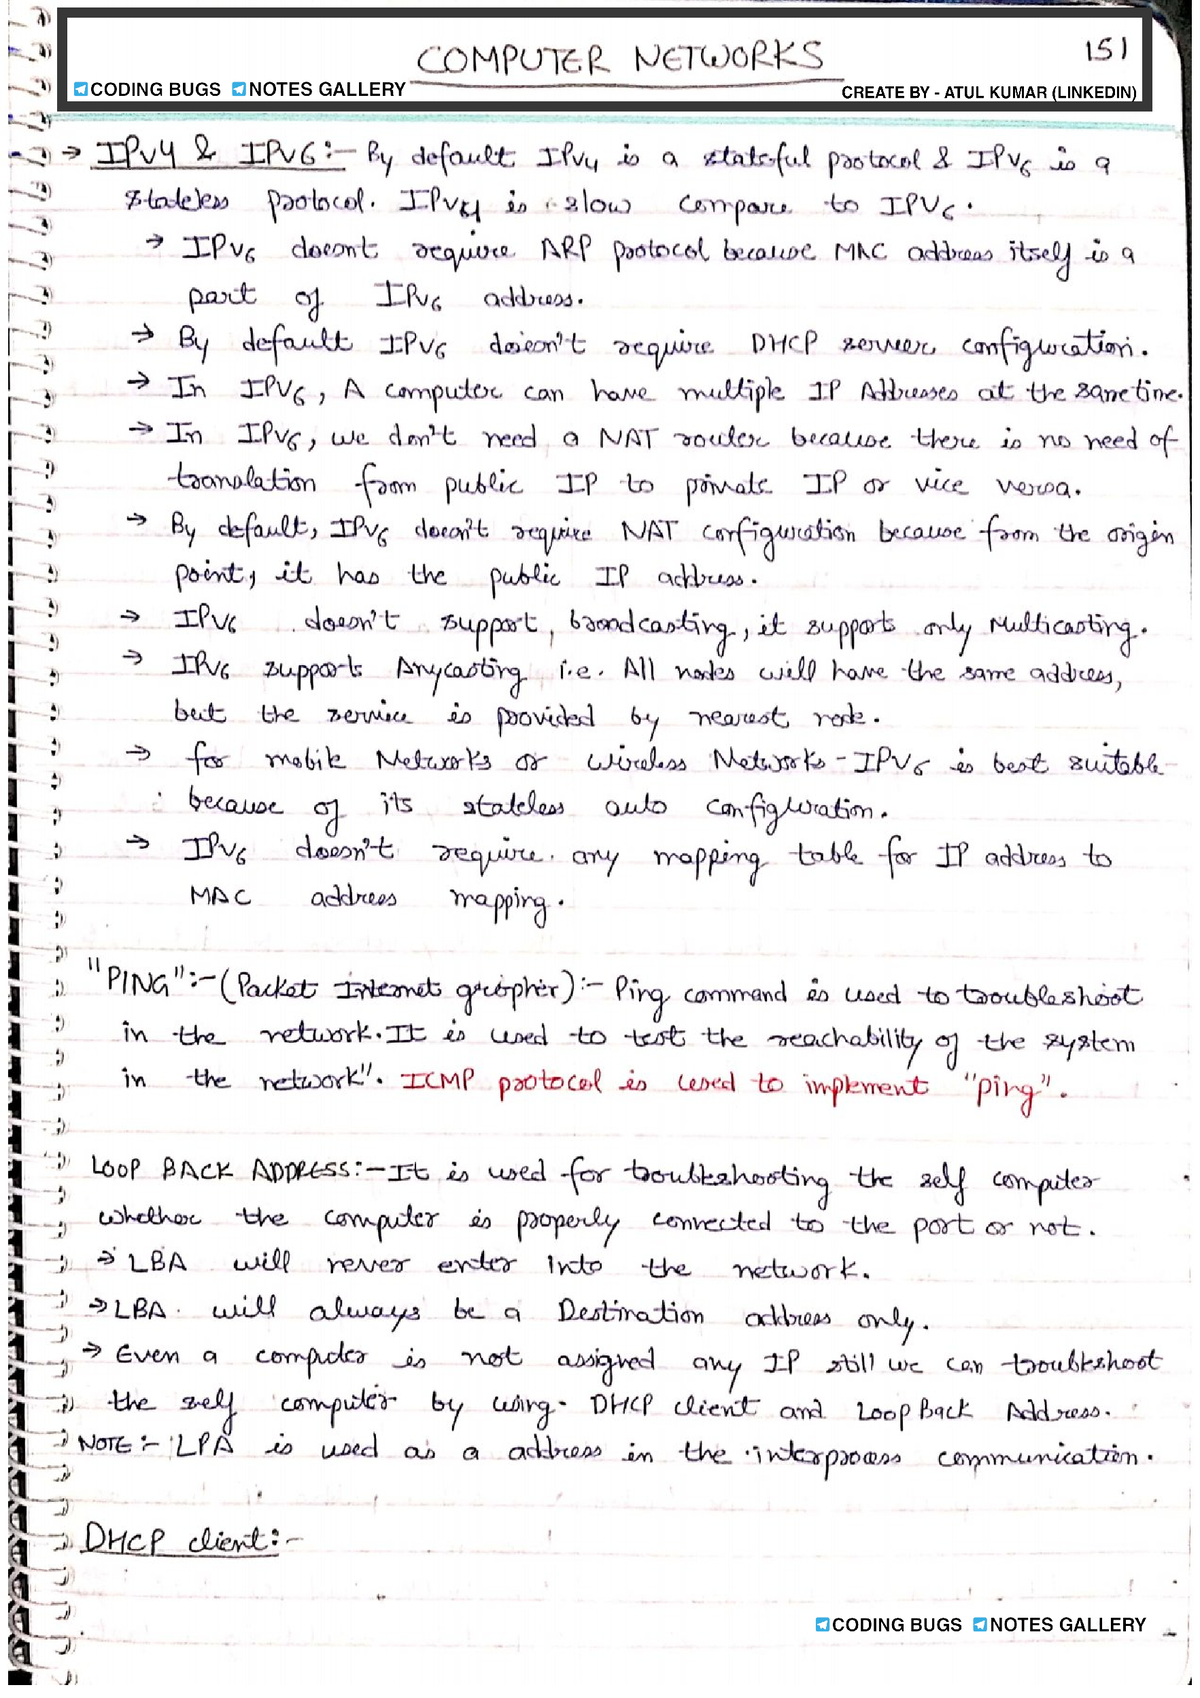 COMPUTER NETWORKS 151
CODING BUGS NOTES GALLERY CREATE BY - ATUL KUMAR (LINKEDIN)
→ IPv4 & IPv6:- By default IPv4 is a stateful protocol & IPv6 is a
stateless protocol. IPv4 is slow compare to IPv6.
→ IPv6 doesnt require ARP protocol because MAC address itself is a
part of IPv6 address.
→ By default IPv6 doesn't require DHCP server configuration.
→ In IPV6, A computer can have multiple IP Addresses at the same time.
→ In IPV6, we don't need a NAT router because there is no need of
translation from public IP to private IP or vice versa.
→ By default, IPV6 doesn't require NAT configuration because from the origin
point, it has the public IP address.
→ IPv6 doesn't support, broadcasting, it supports only Multicasting.
→ IPv6 supports Anycasting i.e. All nodes will have the same address,
but the service is provided by nearest node.
→ for mobile Networks or wireless Networks - IPV6 is best suitable
because of its stateless auto configuration.
→ IPv6 doesn't require any mapping table for IP address to
MAC address mapping.
"PING":- (Packet Internet gropher):- Ping command is used to troubleshoot
in the network. It is used to test the reachability of the system
in the network". ICMP protocol is used to implement "ping".
LOOP BACK ADDRESS:- It is used for troubleshooting the self computer
whether the computer is properly connected to the port or not.
→ LBA will never enter into the network.
→ LBA will always be a Destination address only.
→ Even a computer is not assigned any IP still we can troubleshoot
the self computer by using DHCP client and Loop Back Address.
→ NOTE:- LPA is used as a address in the interprocess communication.
DHCP client:-
CODING BUGS NOTES GALLERY